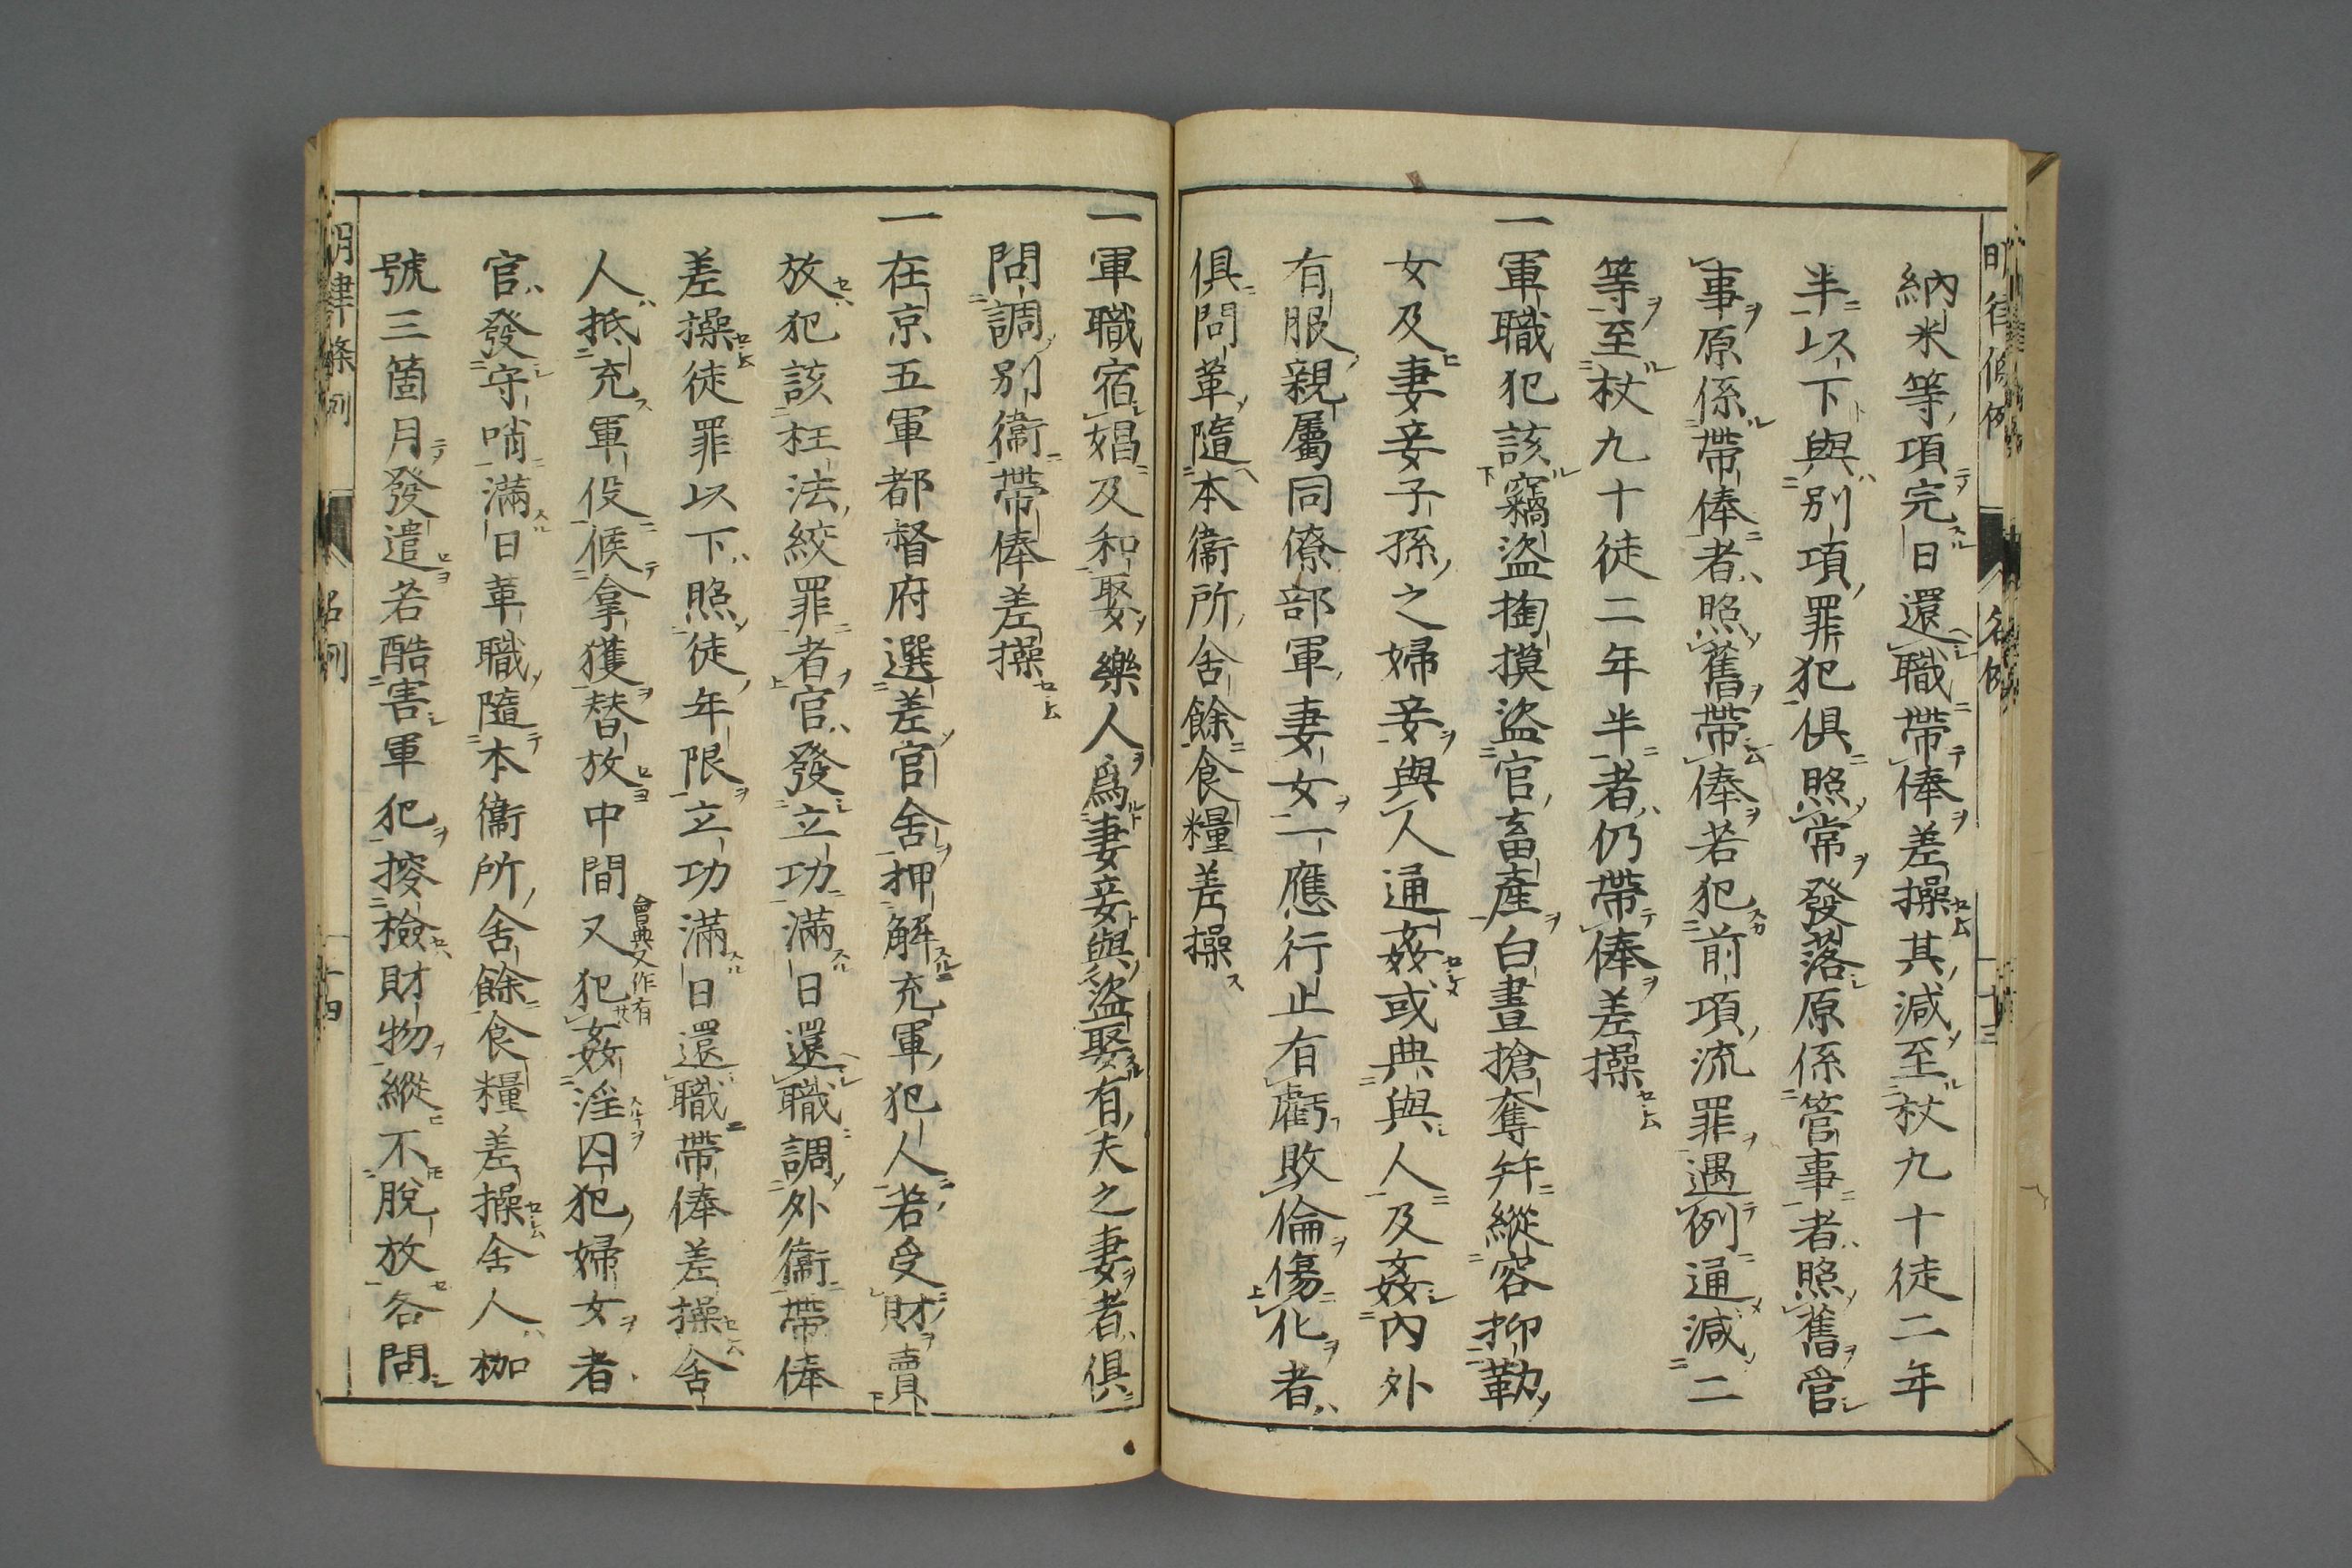 納米等項完日還職帶俸差操其減至杖九十徒二年
半以下與別項罪犯俱照常發落原係管事者照舊管
事原係帶俸者照舊帶俸若犯前項流罪遇例通減二
等至杖九十徒二年半者仍帶俸差操
一軍職犯該竊盜掏摸盜官畜產白晝搶奪幷縱容抑勒
女及妻妾子孫之婦妾與人通姦或典與人及姦內外
有服親屬同僚部軍妻女一應行止有虧敗倫傷化者
俱問革隨本衞所舍餘食糧差操
一軍職宿娼及和娶樂人爲妻妾與盜娶有夫之妻者俱
問調別衞帶俸差操
一在京五軍都督府選差官舍押解充軍犯人若受財賣
放犯該枉法絞罪者官發立功滿日還職調外衞帶俸
差操徒罪以下照徒年限立功滿日還職帶俸差操舍
人抵充軍役候拿獲替放中間又犯姦淫囚犯婦女者
會典又作有
官發守哨滿日革職隨本衞所舍餘食糧差操舍人枷
號三箇月發遣若酷害軍犯搜檢財物縱不脫放各問
明律條例 名例 十四